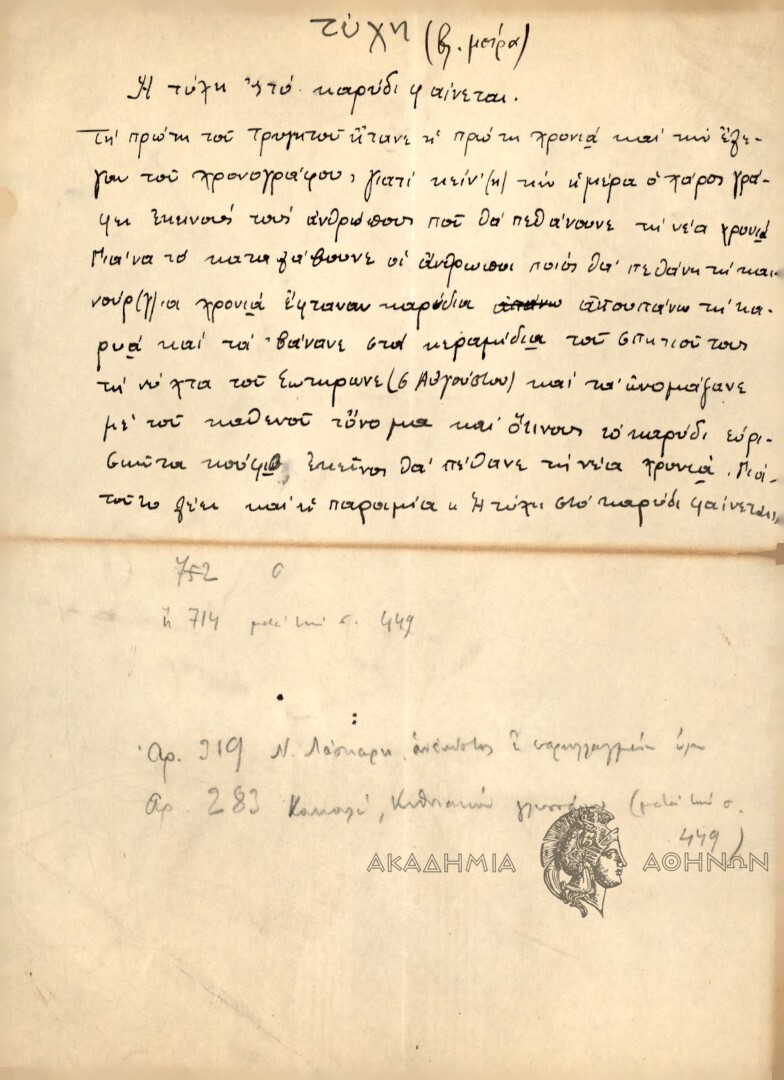 τύχη (βλ. μείρα)
Ἡ τύχη 'ςτὸ καρύδι φαίνεται.
Τὴ πρώτη τοῦ Τρυγητοῦ ἤτανε ἡ πρώτη χρονιά καὶ τὴν ἔλε-
γαν τοῦ χρονογράφου, γιατὶ κείν'(η) τὴν ἡμέρα ὁ χάρος γρά-
φει ἐκεινούς τοὺς ἀνθρώπους ποῦ θὰ πεθάνουνε τὴ νέα χρονιά
Γιὰ νὰ τὸ καταλάβουνε οἱ ἄνθρωποι ποιὸς θὰ πεθάνη τὴ και-
νούρ(γ)ια χρονιά ἔφταναν καρύδια ἀπάνω ἀπουπάνω τὴ κα-
ρυά καὶ τὰ βάνανε στὰ κεραμίδια τοῦ σπιτιοῦ τους
τὴ νύχτα τοῦ Σωτηρωνε (6 Αὐγούστου) καὶ τὰ ὠνομάζανε
μὲ τοῦ καθενοῦ τὄνομα καὶ ὅτινους τὸ καρύδι εὑρί-
σκῆτα κούφιο, ἐκεῖνος θὰ πέθανε τὴ νέα χρονιά. Γιὰ
τοῦτο λέει καὶ ἡ παροιμία « Ἡ τύχη στὸ καρύδι φαίνεται»
752 σ
ἢ 714 μετὰ τὴν σ. 449
Ἀρ. 319 Ν. Λάσκαρη,
Ἀρ. 283 (μετὰ τὴν σ.
449)
ΑΚΑΔΗΜΙΑ ΑΘΗΝΩΝ